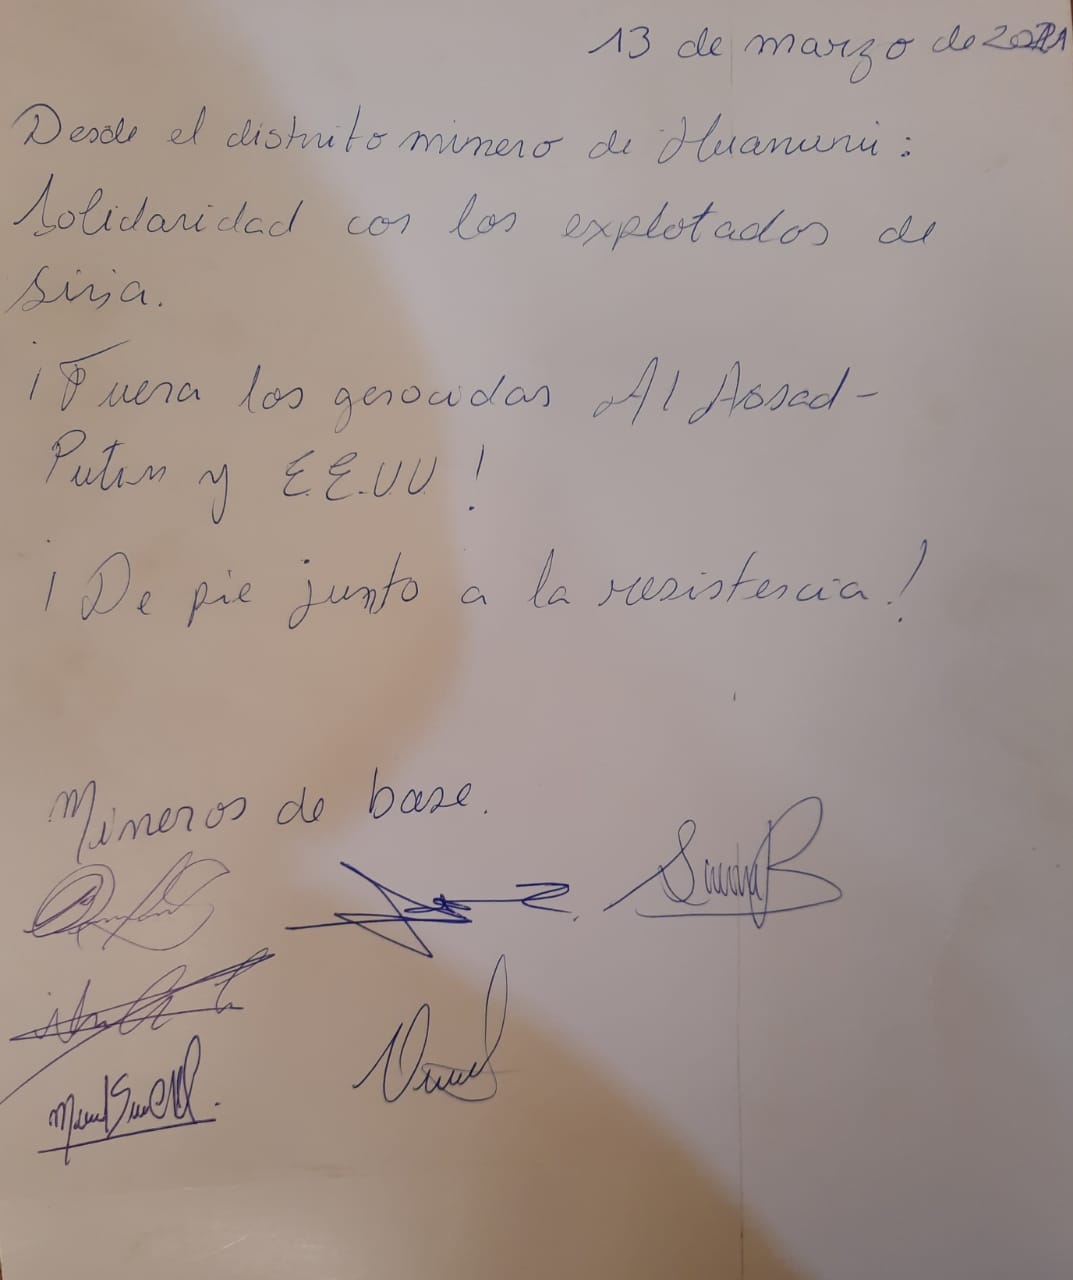 13 de marzo de 2021
Desde el distrito minero de Huanuni:
Solidaridad con los explotados de
Siria.
¡Fuera los genocidas Al Assad-
Putin y E.E.U.U!
¡De pie junto a la resistencia!
Mineros de base.